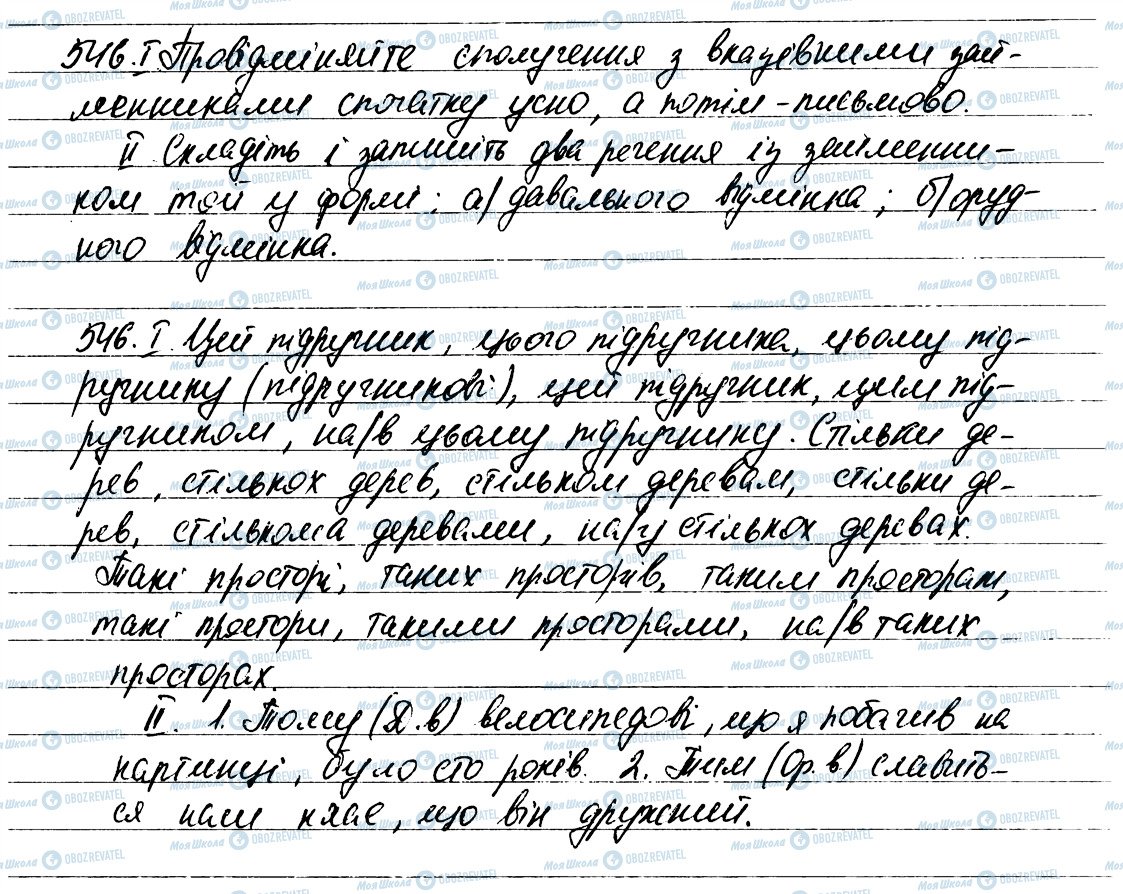 546. I Провідміняйте сполучення з вказівними зай-
менниками спочатку усно, а потім - письмово.
II Складіть і запишіть два речення із займенни-
ком той у формі: а) давального відмінка; б) оруд-
ного відмінка.
546. I. Цей підручник, цього підручника, цьому під-
ручнику (підручникові), цей підручник, цим під-
ручником, на/в цьому підручнику. Стільки де-
рев, стількох дерев, стільком деревам, стільки де-
рев, стількома деревами, на/у стількох деревах.
Такі простори, таких просторів, таким просторам,
такі простори, такими просторами, на/в таких
просторах.
II. 1. Тому (Д.в) велосипедові, що я побачив на
картинці, було сто років. 2. Тим (Ор.в) славить-
ся наш клас, що він дружний.